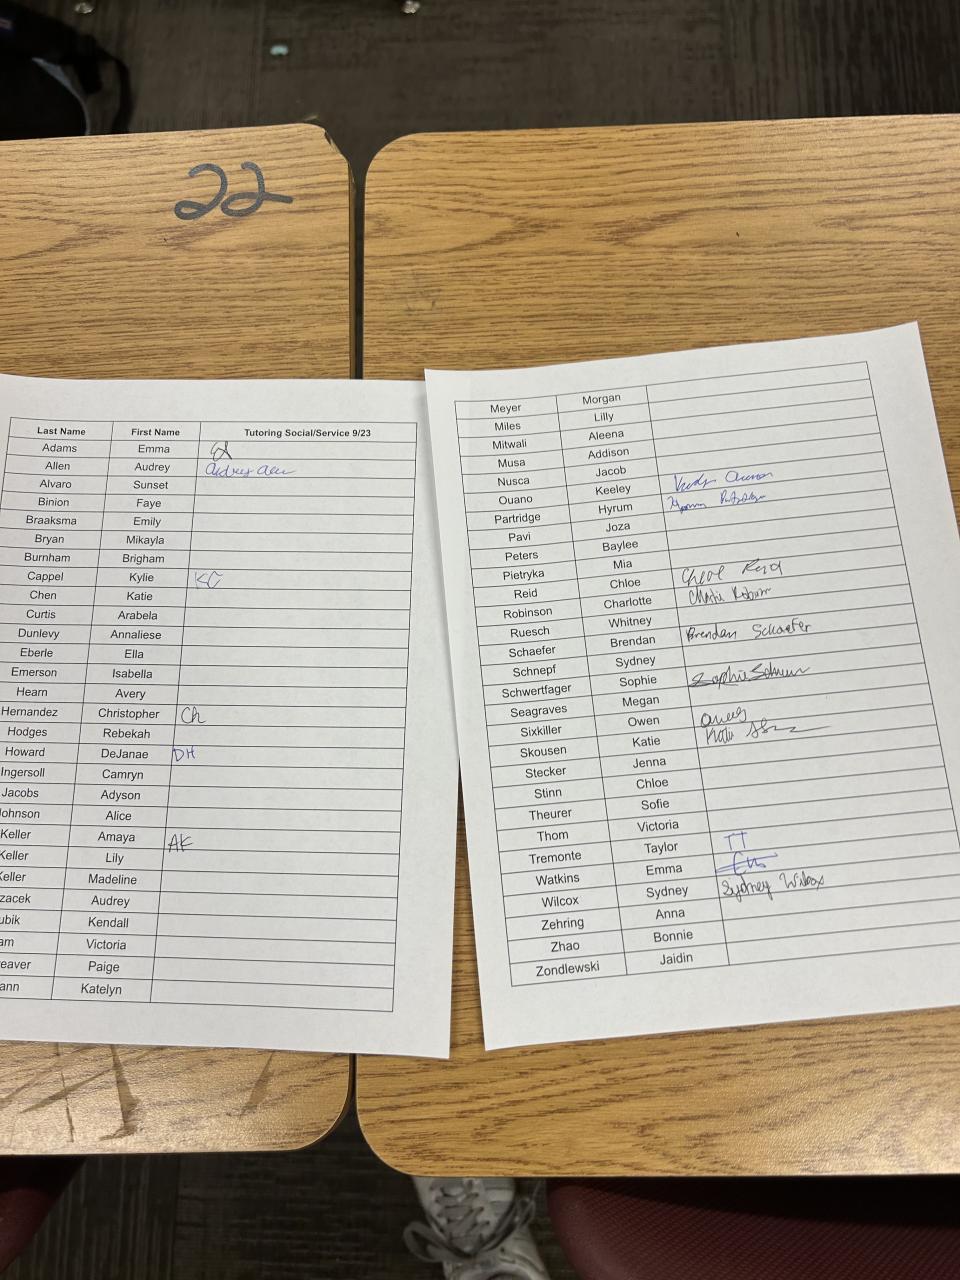 22
Last Name First Name Tutoring Social/Service 9/23
Adams Emma
Allen Audrey Audrey Allen
Alvaro Sunset
Binion Faye
Braaksma Emily
Bryan Mikayla
Burnham Brigham
Cappel Kylie KC
Chen Katie
Curtis Arabela
Dunlevy Annaliese
Eberle Ella
Emerson Isabella
Hearn Avery
Hernandez Christopher Ch
Hodges Rebekah
Howard DeJanae DH
Ingersoll Camryn
Jacobs Adyson
ohnson Alice
Keller Amaya AK
Keller Lily
Keller Madeline
zacek Audrey
ubik Kendall
am Victoria
eaver Paige
ann Katelyn
Meyer Morgan
Miles Lilly
Mitwali Aleena
Musa Addison
Nusca Jacob
Ouano Keeley
Partridge Hyrum
Pavi Joza
Peters Baylee
Pietryka Mia
Reid Chloe Chloe Reid
Robinson Charlotte
Ruesch Whitney
Schaefer Brendan Brendan Schaefer
Schnepf Sydney
Schwertfager Sophie
Seagraves Megan
Sixkiller Owen
Skousen Katie
Stecker Jenna
Stinn Chloe
Theurer Sofie
Thom Victoria
Tremonte Taylor TT
Watkins Emma
Wilcox Sydney Sydney Wilcox
Zehring Anna
Zhao Bonnie
Zondlewski Jaidin